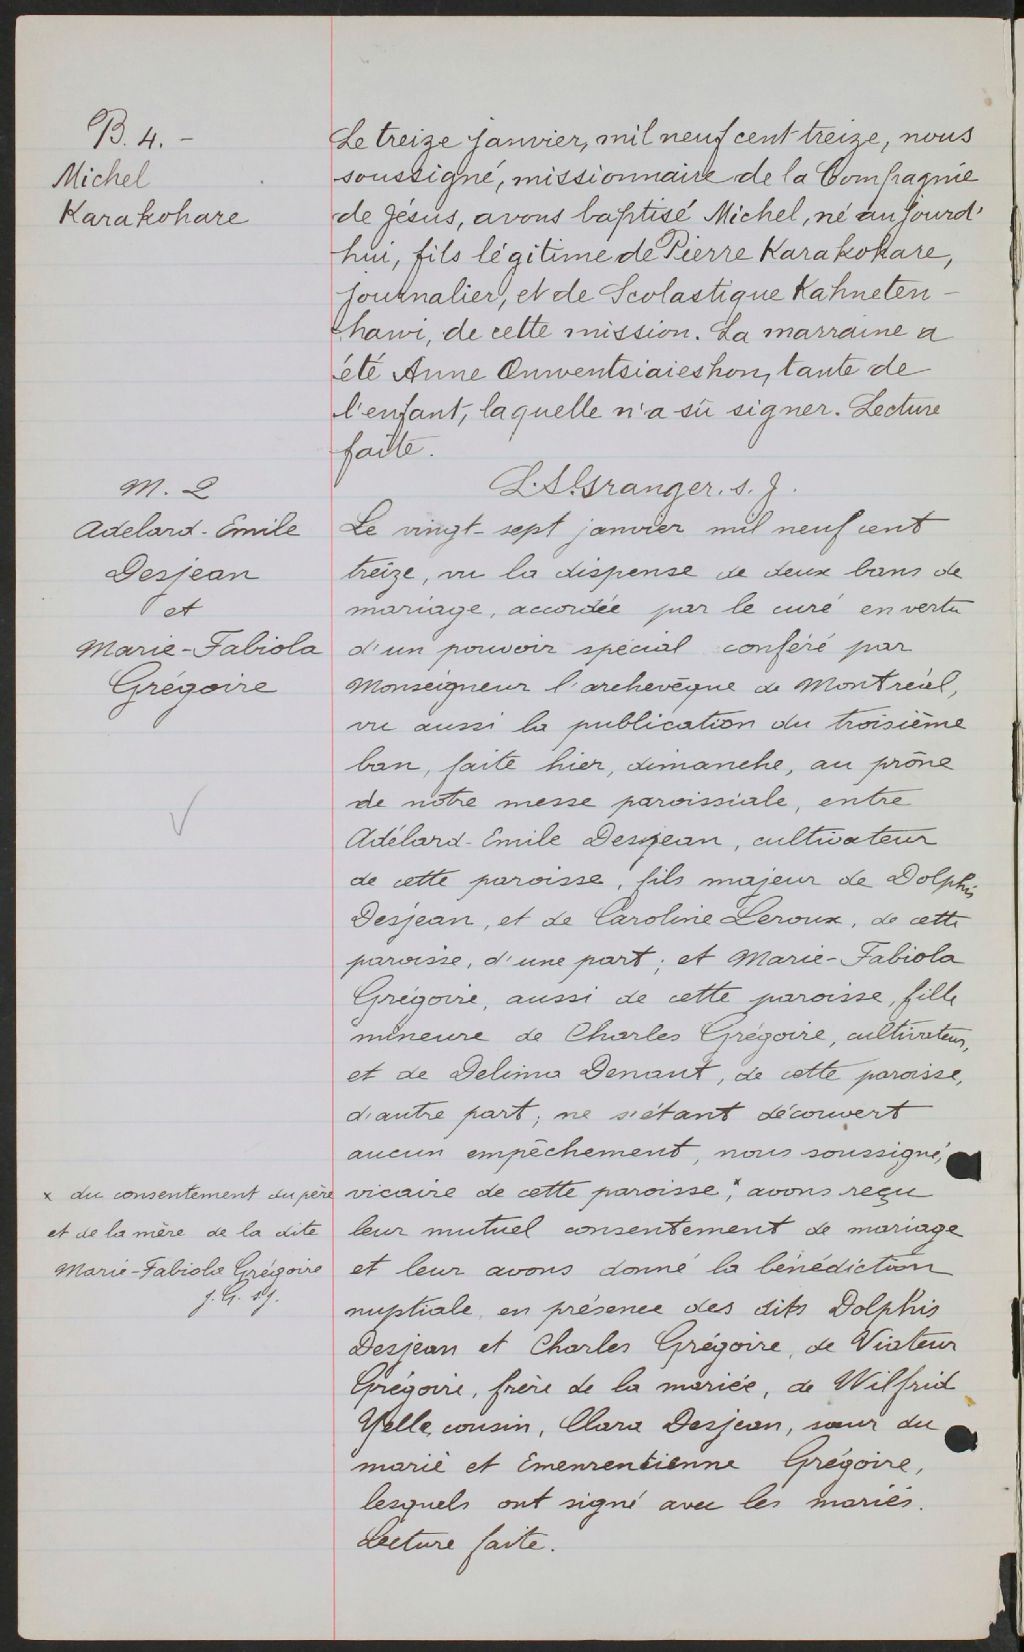 B. 4. -
Michel
Karakohare
Le treize janvier, mil neuf cent treize, nous
soussigné, missionnaire de la Compagnie
de Jésus, avons baptisé Michel, né aujourd'
hui, fils légitime de Pierre Karakohare,
journalier, et de Scolastique Kahneten-
hawi, de cette mission. La marraine a
été Anne Onwentsiaieshon, tante de
l'enfant, laquelle n'a sû signer. Lecture
faite.
L. S. Granger. s. j.
M. 2
Adelard-Emile
Desjean
et
Marie-Fabiola
Grégoire
Le vingt-sept janvier mil neuf cent
treize, vu la dispense de deux bans de
mariage, accordée par le curé en vertu
d'un pouvoir spécial conféré par
Monseigneur l'archevêque de Montréal,
vu aussi la publication du troisième
ban, faite hier, dimanche, au prône
de notre messe paroissiale, entre
Adélard-Emile Desjean, cultivateur
de cette paroisse, fils majeur de Dolphis
Desjean, et de Caroline Leroux, de cette
paroisse, d'une part; et Marie-Fabiola
Grégoire, aussi de cette paroisse, fille
mineure de Charles Grégoire, cultivateur,
et de Delima Denaut, de cette paroisse,
d'autre part; ne s'étant découvert
aucun empêchement, nous soussigné,
vicaire de cette paroisse,x avons reçu
leur mutuel consentement de mariage
et leur avons donné la bénédiction
nuptiale, en présence des dits Dolphis
Desjean et Charles Grégoire, de Viateur
Grégoire, frère de la mariée, de Wilfrid
Yelle, cousin, Clara Desjean, sœur du
marié et Emenrentienne Grégoire,
lesquels ont signé avec les mariés.
Lecture faite.
x du consentement du père
et de la mère de la dite
Marie-Fabiola Grégoire
J. G. s.j.